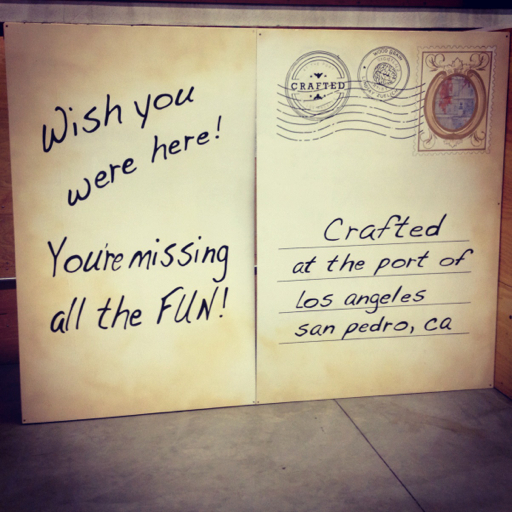 Wish you
were here!
You're missing
all the FUN!
CRAFTED
Crafted
at the port of
los angeles
san pedro, ca